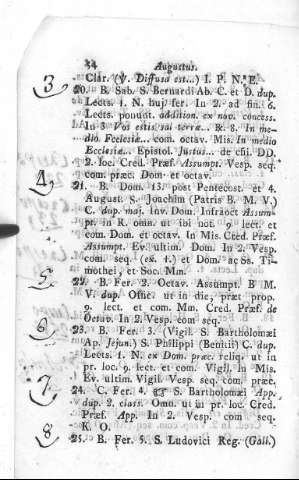 34 Augustus.
Clár. (V. Diffusa est...) I. P. N. E.
3
20. B. Sab. S. Bernardi Ab. C. et D. dup.
Lects. 1. N. huj fer. In 2. ad fin. 6.
Lects. ponunt. addition. ex nov. concess.
In 3 Vos estis sal terræ... & 8. In me-
dio Ecclesiæ... com. octav. Mis. In medio
Ecclesiæ... Epistol. Justus... de cſſi. DD.
2. loc. Cred. Præf. Assumpt. Vesp. seq.
com. præc. Dom et octav.
4
21. B. Dom. 13. post Pentecost. et 4.
August. S. Joachim (Patris B. M. V.)
C. dup. maj. Inv. Dom. Infraoct Assum-
pt. in R. omn. ut ibi not. 9. lect et
com. Dom. et octav. In Mis. Cred. Præf.
Assumpt. Ev. ultim. Dom. In 2. Vesp.
com. seq. (ex 1.) et Dom ac Ss. Ti-
mothei, et Soc. Mm.
5
22. B. Fer. 2. Octav. Assumpt. B M
V. dup. Ofnc. ut in die, præt prop.
9. lect. et com. Mm. Cred. Præf. de
Octav. In 2. Vesp. com seq.
6
23. B. Fer. 3. (Vigil. S. Bartholomæi
Ap. Jejun.) S. Philippi (Benitii) C. dup.
Lects. 1. N. ex Dom. præc. reliq. ut in
pr. loc. 9. lect. et com. Vigil. In Mis.
Ev. ultim. Vigil. Vesp. seq. com. præc.
7
24. C. Fer. 4. ☞ S. Bartholomæi App.
dup. 2. class. Omn. ut in pr. loc. Cred.
Præf. App. In 2. Vesp. com seq.
K. O.
8
25. B. Fer. 5. S. Ludovici Reg. (Gall.)